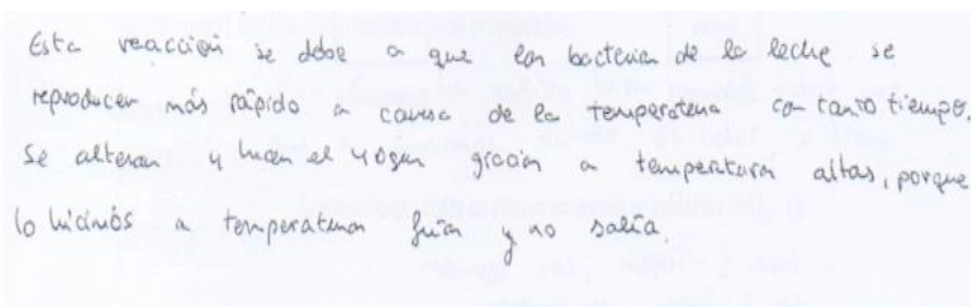 Esta reacción se debe a que las bacterias de la leche se
reproducen más rápido a causa de la temperatura con tanto tiempo,
se alteran y hacen el yogur gracias a temperaturas altas, porque
lo hicimos a temperaturas frías y no salía.